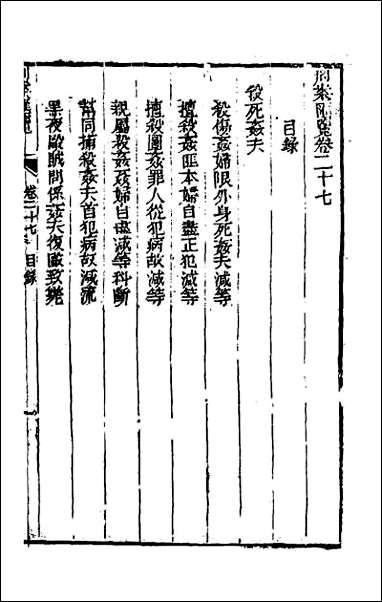 刑案匯覽卷二十七
目錄
殺死姦夫
殺傷姦婦限外身死姦夫減等
擅殺姦匪本婦自盡正犯減等
擅殺圖姦罪人從犯病故減等
親屬殺姦姦婦自盡減等科斷
幫同捕殺姦夫首犯病故減流
黑夜毆賊問係姦夫復毆致斃
卷二十七 目錄